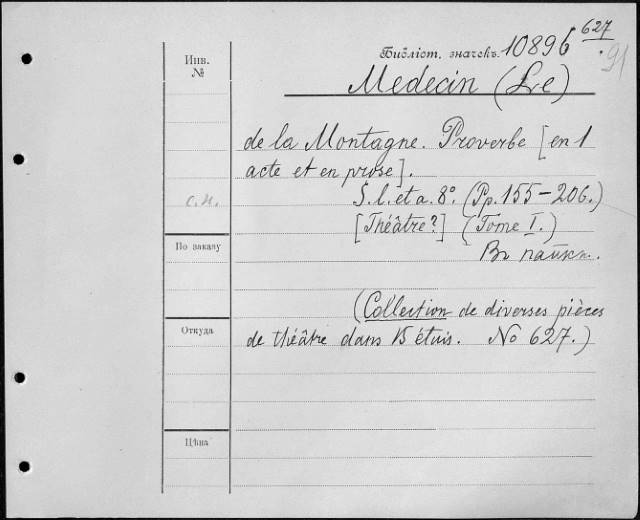 627
Инв. №
Библіот. значекъ 10896 91
Medecin (Le)
de la Montagne. Proverbe [en 1
acte et en prose].
С.И.
S. l. et a. 8°. (Pp. 155-206.)
[Théâtre?] (Tome I.)
По заказу
Въ папкѣ.
(Collection de diverses pièces
Откуда
de théâtre dans 15 étuis. No 627.)
Цѣна